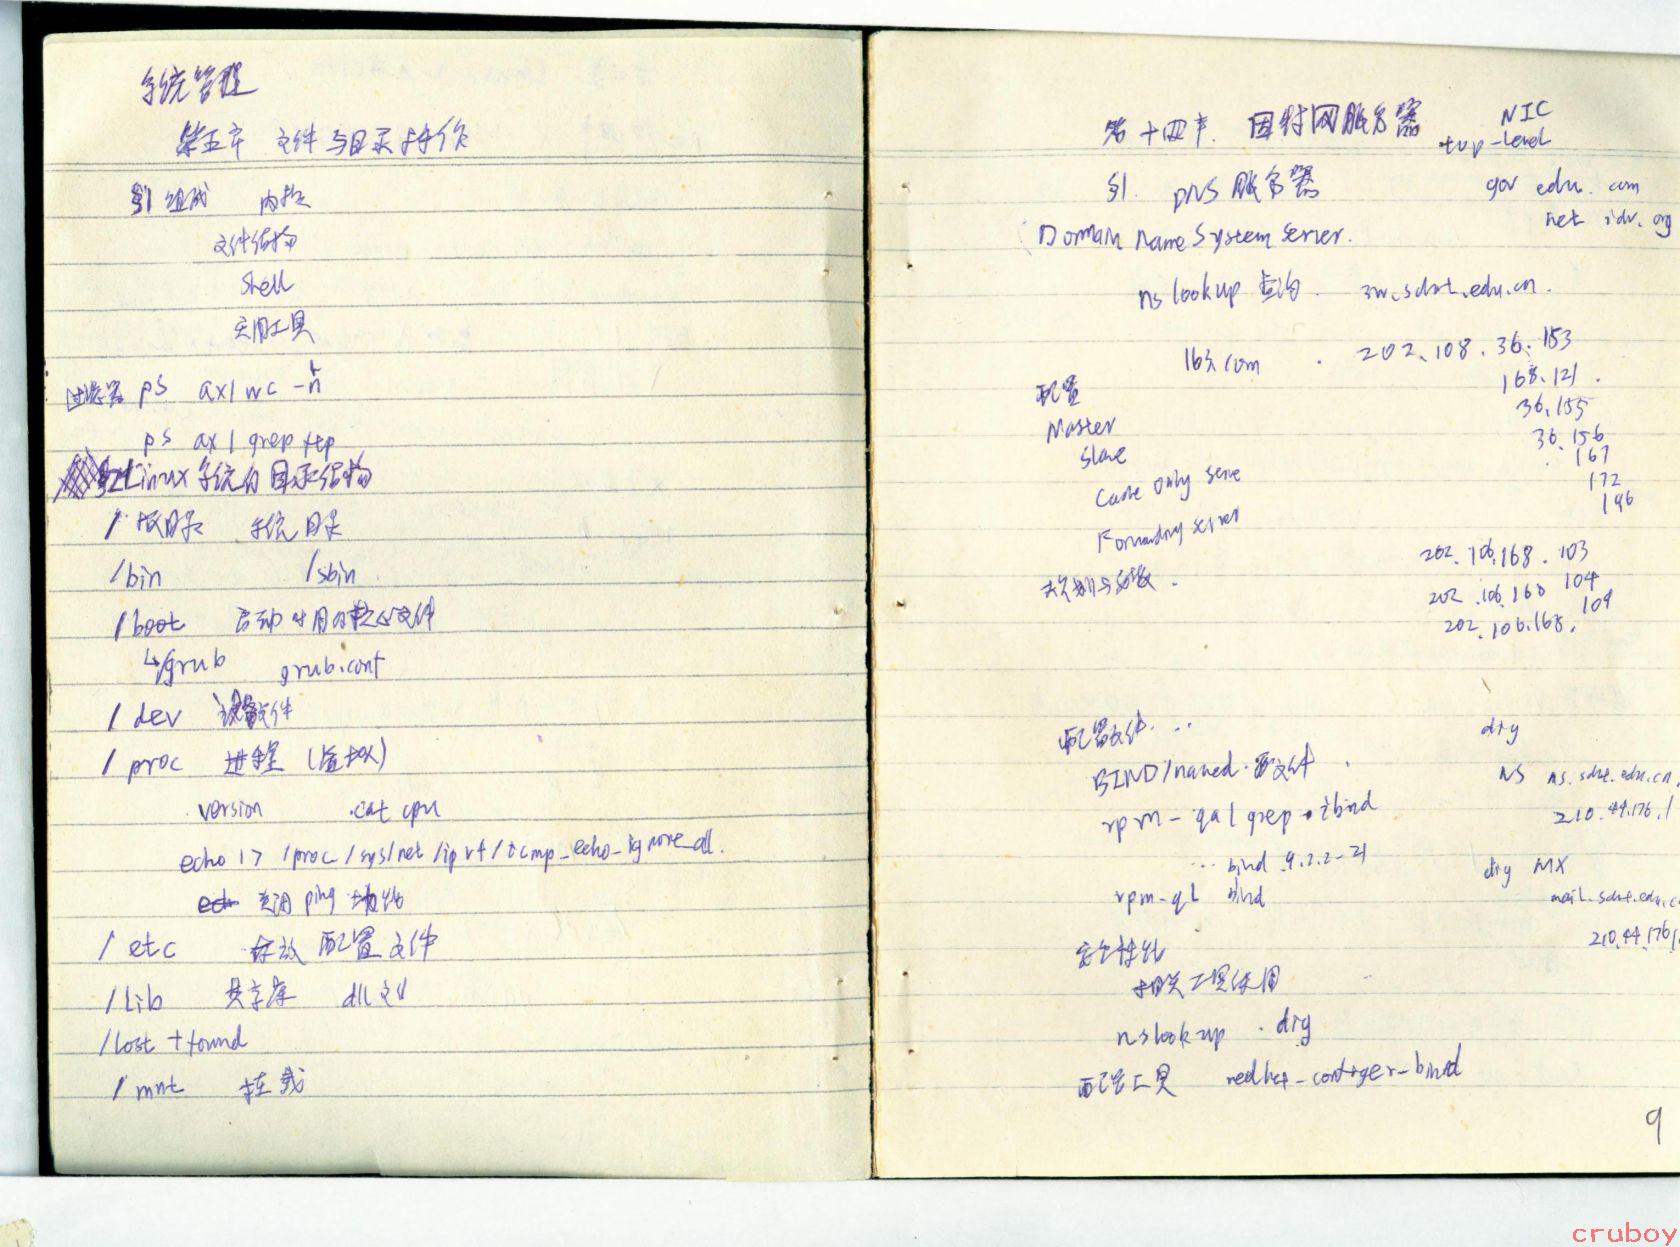 系统管理
第五章 文件与目录操作
§1 组成 内核
文件结构
shell
实用工具
过滤器 ps ax | wc -l
ps ax | grep ftp
§2 Linux 系统的目录结构
/ 根目录 系统目录
/bin /sbin
/boot 启动时用的核心文件
↳/grub grub.conf
/dev 设备文件
/proc 进程 (虚拟)
version cat cpu
echo 1 > /proc/sys/net/ipv4/icmp_echo_ignore_all
关闭 ping
/etc 存放配置文件
/Lib 共享库 dll
/lost+found
/mnt 挂载
第十四章. 因特网服务器
NIC
top-level
§1. DNS 服务器
gov edu. com
net idv. org
Domain Name System Server.
nslookup 查询. 3w.sdut.edu.cn.
163.com . 202.108.36.153
168.121.
配置
36.155
Master
36.156
Slave
. 167
Cache Only serve
172
196
Forwarding server
202.106.168.103
202.106.168 104
202.106.168. 109
配置文件...
dig
BIND/named.配文件.
NS ns.sdut.edu.cn.
rpm -qa | grep bind
210.44.176.1
... bind 9.2.2-21
dig MX
rpm -ql bind
mail.sdut.edu.c
210.44.176.1
安全性
相关工具使用
nslookup . dig
配置工具 redhat-config-bind
9
cruboy